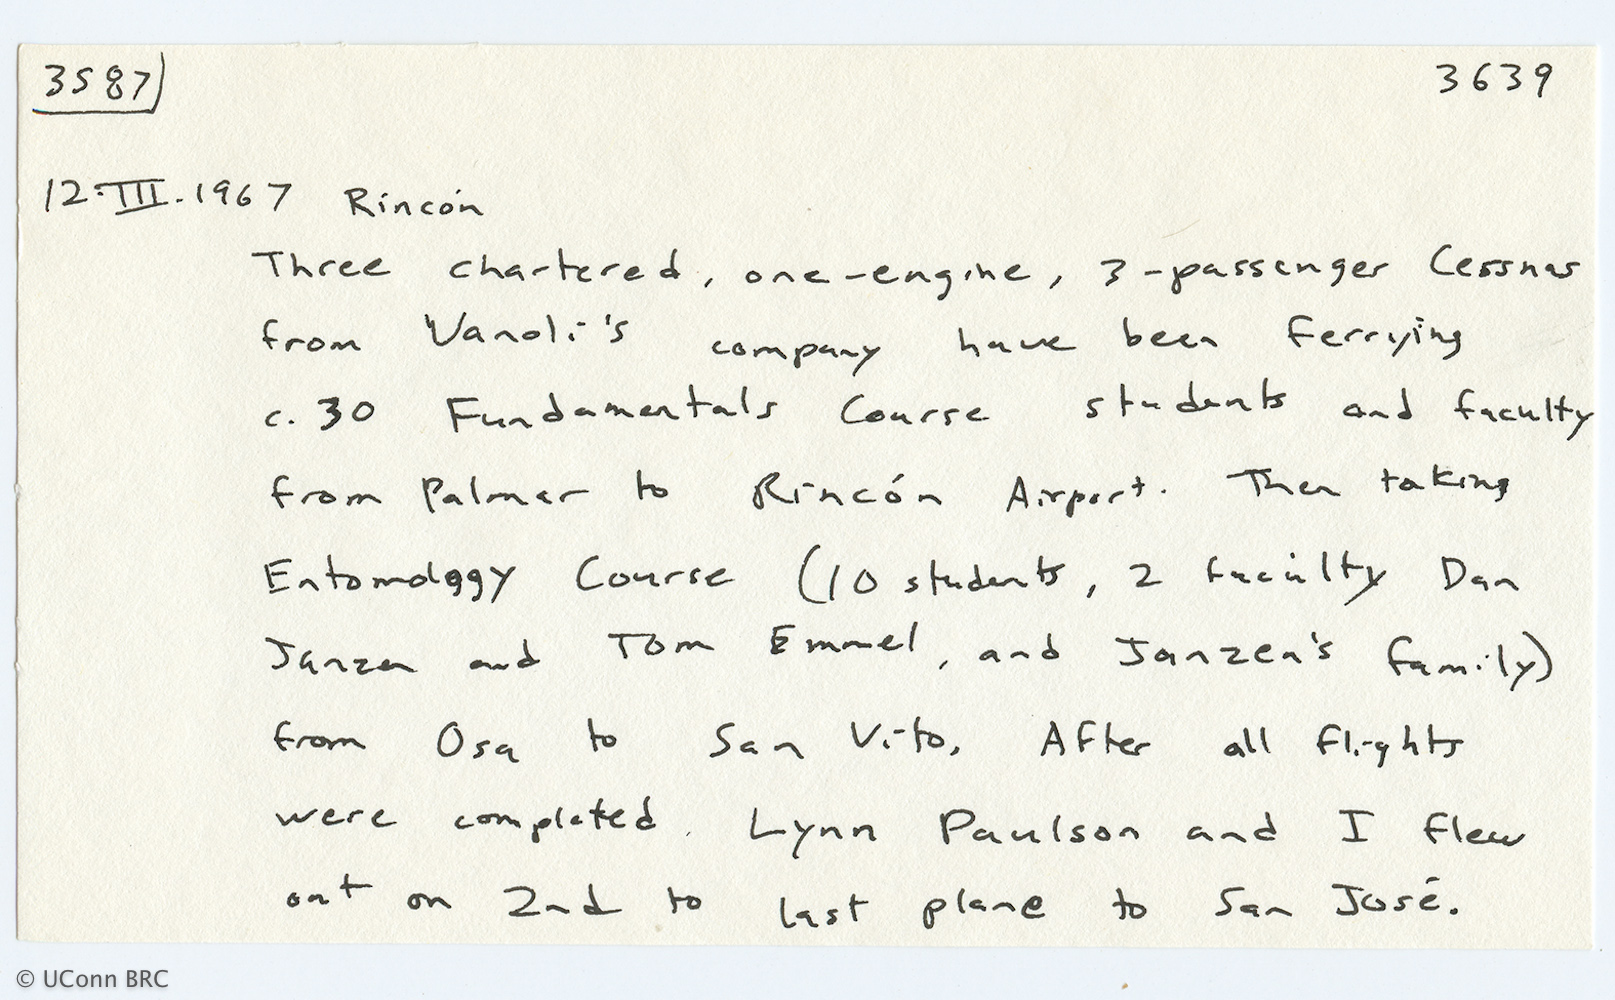 3587 3639
12.III.1967 Rincón
Three chartered, one-engine, 3-passenger Cessnas
from Vanoli's company have been ferrying
c. 30 Fundamentals Course students and faculty
from Palmar to Rincón Airport. Then taking
Entomology Course (10 students, 2 faculty Dan
Janzen and Tom Emmel, and Janzen's family)
from Osa to San Vito. After all flights
were completed. Lynn Paulson and I flew
out on 2nd to last plane to San José.
© UConn BRC